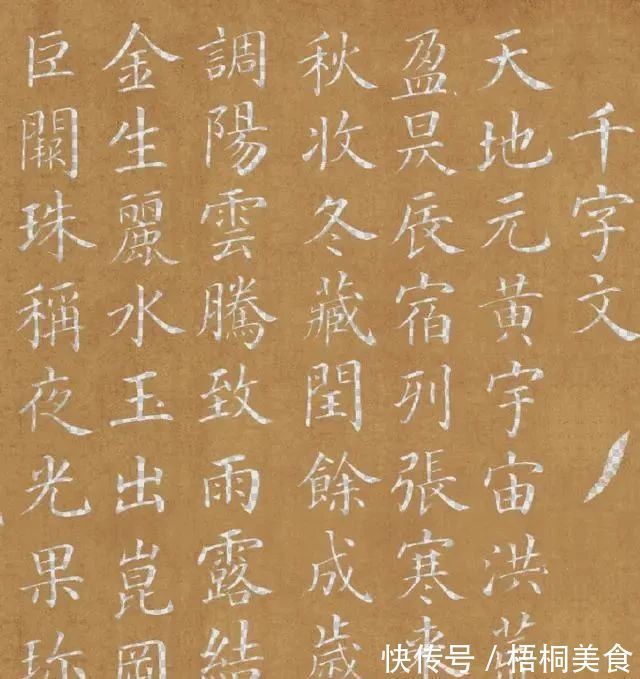 千字文
天地元黄宇宙洪荒
盈昃辰宿列張寒來
秋收冬藏閏餘成歲
調陽雲騰致雨露結
金生麗水玉出崑岡
巨闕珠稱夜光果珎
快传号 / 梧桐美食